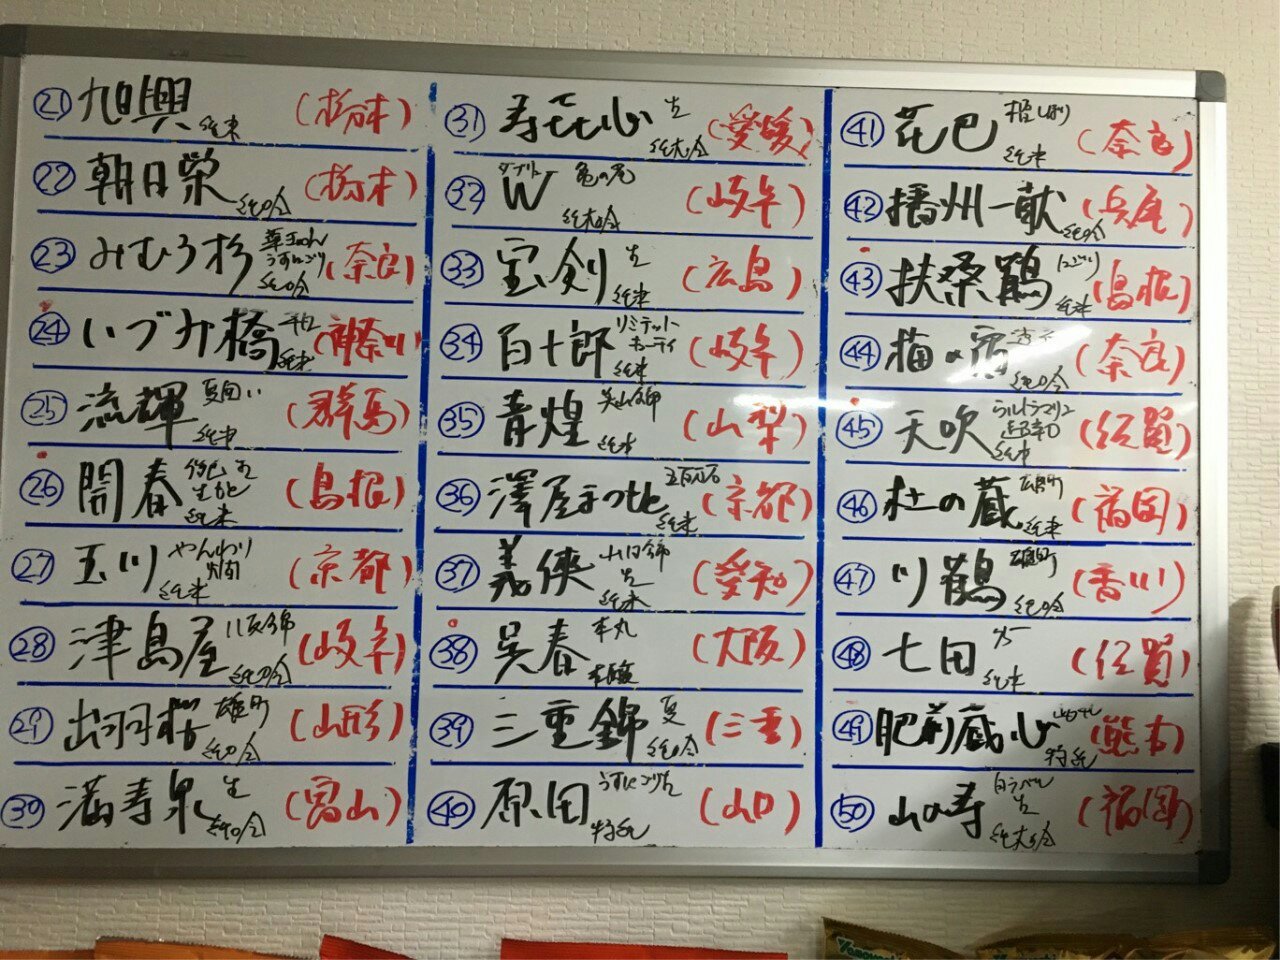 21 旭興 純米 (栃木)
22 朝日栄 純吟 (栃木)
23 みむろ杉 うすにごり 純吟 (奈良)
24 いづみ橋 純米 (神奈川)
25 流輝 夏囲い 純米 (群馬)
26 開春 純米 (島根)
27 玉川 やんわり 純米 (京都)
28 津島屋 八反錦 純吟 (岐阜)
29 出羽桜 雄町 純吟 (山形)
30 満寿泉 生 純吟 (富山)
31 寿喜心 生 純大吟 (愛媛)
32 W ダブリュー 亀の尾 純大吟 (岐阜)
33 宝剣 生 純米 (広島)
34 百十郎 リミテット 純米 (岐阜)
35 青煌 美山錦 純米 (山梨)
36 澤屋まつもと 五百万石 純米 (京都)
37 義侠 山田錦 生 純米 (愛知)
38 呉春 本丸 本醸 (大阪)
39 三重錦 夏 純吟 (三重)
40 原田 うすにごり生 特純 (山口)
41 花巴 純米 (奈良)
42 播州一献 純吟 (兵庫)
43 扶桑鶴 にごり 純米 (島根)
44 梅の宿 純吟 (奈良)
45 天吹 ウルトラマリン 超辛口 純米 (佐賀)
46 杜の蔵 雄町 純米 (福岡)
47 川鶴 雄町 純吟 (香川)
48 七田 純米 (佐賀)
49 肥前蔵心 特純 (熊本)
50 山の寿 白ラベル 生 純大吟 (福岡)